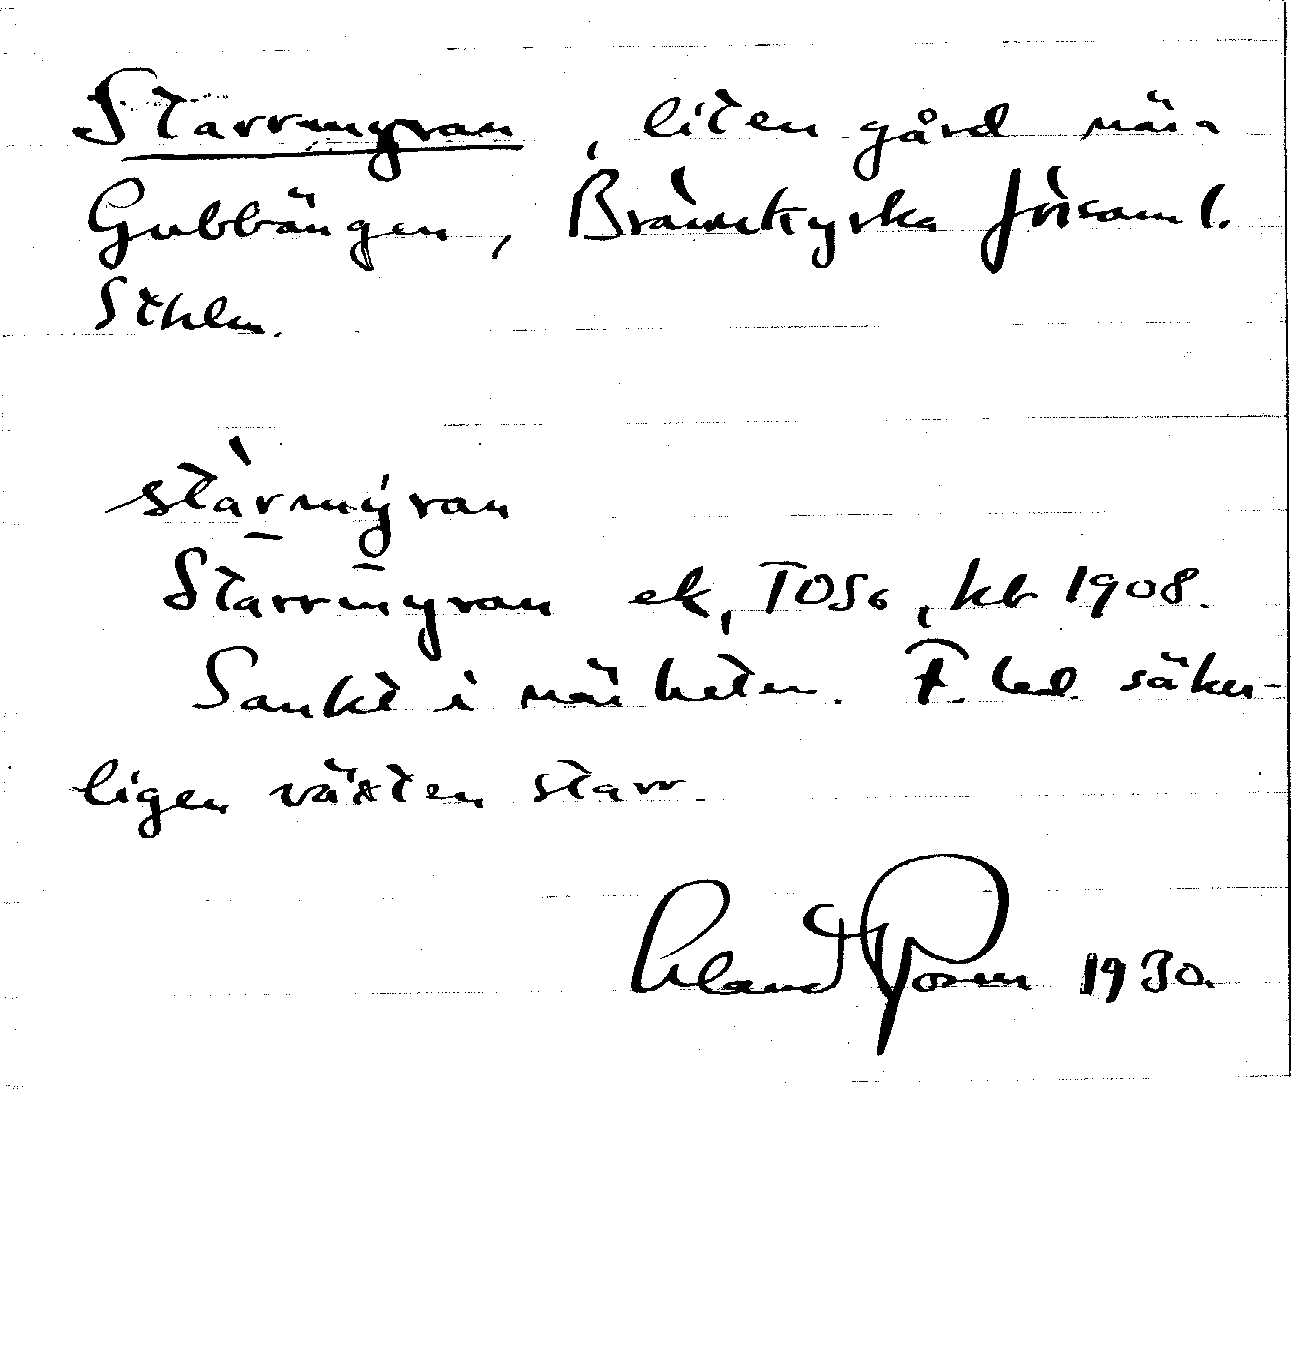 Starrmyran, liten gård nära
Gubbängen, Brännkyrka församl.
Sthlm.
stàrmýran
Starrmyran ek, TOSö, kb 1908.
Sankt i närheten. F. led. säker-
ligen växten starr.
1930.